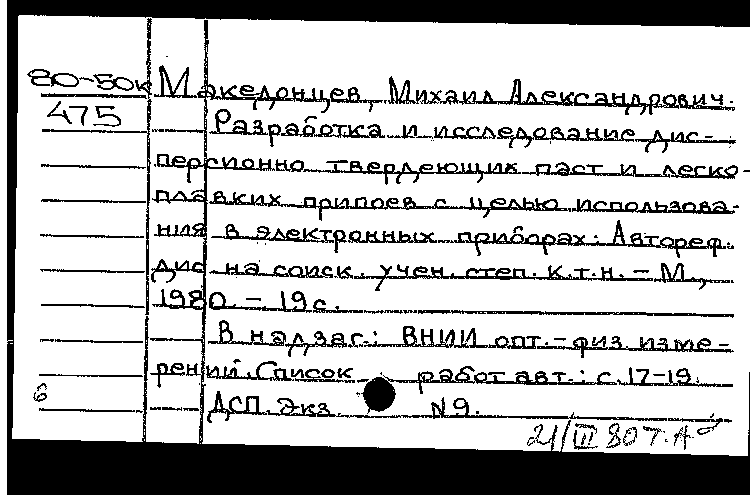 80-50к Македонцев, Михаил Александрович.
475 Разработка и исследование дис-
персионно твердеющих паст и легко-
плавких припоев с целью использова-
ния в электронных приборах: Автореф.
дис на соиск. учен. степ. к.т.н. – М.,
1980. – 19с.
В надзаг.: ВНИИ опт.-физ. изме-
рений. Список работ авт.: с. 17-19.
ДСП. Экз. N9.
21/III 80 Т.А